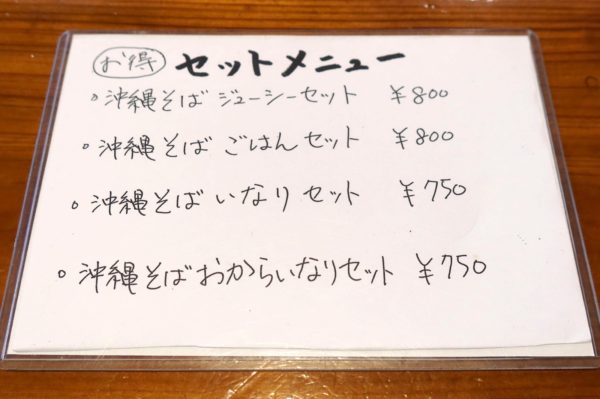 お得 セットメニュー
。沖縄そば ジューシーセット ¥800
。沖縄そば ごはんセット ¥800
。沖縄そば いなりセット ¥750
。沖縄そばおからいなりセット ¥750